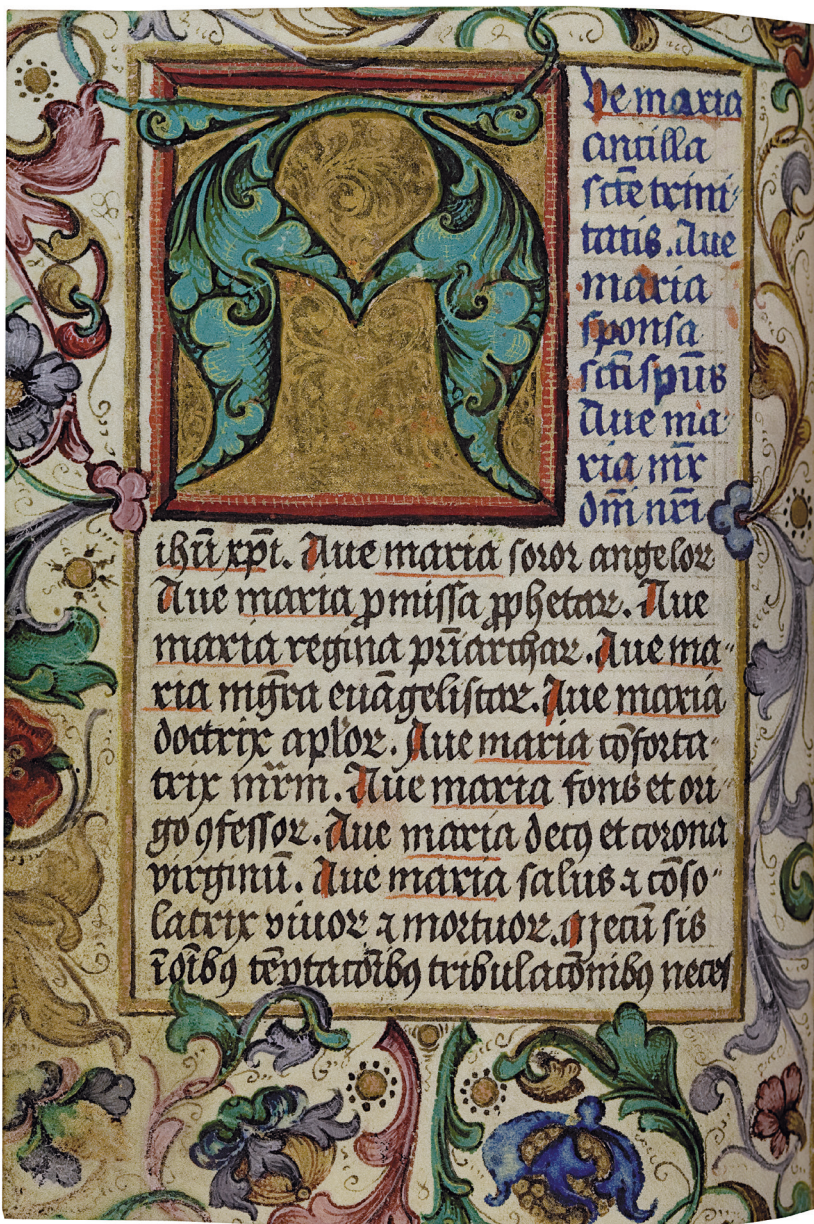 Aue maria
ancilla
scte trini
tatis. Aue
maria
sponsa
scti spūs
Aue ma
ria mr̄
dn̄i nr̄i
ihū xp̄i. Aue maria soror angeloꝝ
Aue maria ꝓmissa ꝓphetaꝝ. Aue
maria regina pr̄iarchaꝝ. Aue ma
ria mgr̄a euāgelistaꝝ. Aue maria
doctrix apl̄oꝝ. Aue maria cōforta
trix mr̄m. Aue maria fons et ori
go ꝯfessoꝝ. Aue maria decꝰ et corona
virginū. Aue maria salus ⁊ cōso
latrix viuoꝝ ⁊ mortuoꝝ. Mecū sis
ī oīb9 tēptacōib9 tribulacōnib9 neces